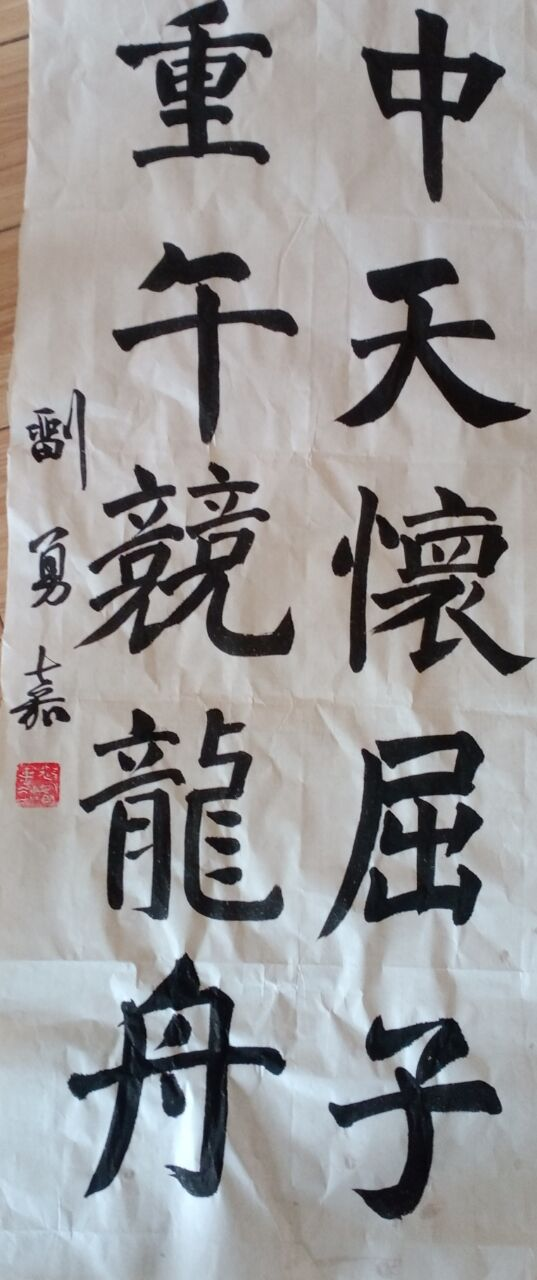 中天懷屈子
重午競龍舟
劉勇嘉